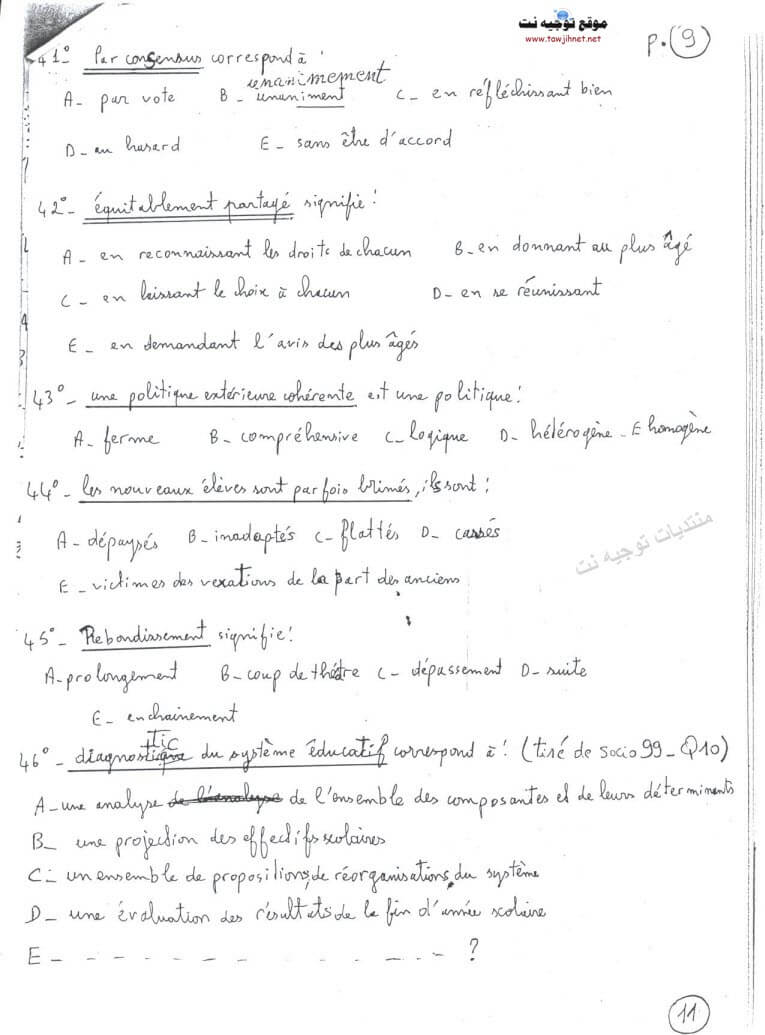 موقع توجيه نت
www.tawjihnet.net
p.(9)
41°- Par consensus correspond à :
unanimement
A- par vote B- unaniment C- en réfléchissant bien
D- au hasard E- sans être d'accord
42°- équitablement partagé signifie :
A- en reconnaissant les droits de chacun B- en donnant au plus âgé
C- en laissant le choix à chacun D- en se réunissant
E- en demandant l'avis des plus âgés
43°- une politique extérieure cohérente est une politique :
A- ferme B- compréhensive C- logique D- hétérogène - E homogène
44°- les nouveaux élèves sont parfois brimés, ils sont :
A- dépaysés B- inadaptés C- flattés D- cassés
منتديات توجيه نت
E- victimes des vexations de la part des anciens
45°- Rebondissement signifie :
A- prolongement B- coup de théâtre C- dépassement D- suite
E- enchainement
tic
46°- diagnostique du système éducatif correspond à : (tiré de socio 99 - Q10)
A- une analyse de l'analyse de l'ensemble des composantes et de leurs déterminents
B- une projection des effectifs scolaires
C- un ensemble de propositions, de réorganisations du système
D- une évaluation des résultats de la fin d'année scolaire
E - - - - - - - - - - - - - - ?
11